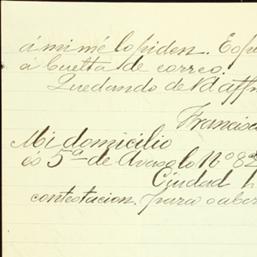 á mi mé lo piden. Espe
á buelta de correo.
Quedando de Vd affm
Francisc
Mi domicilio
és 5ª de Avasolo Nº 82
Ciudad
contestacion. para saber